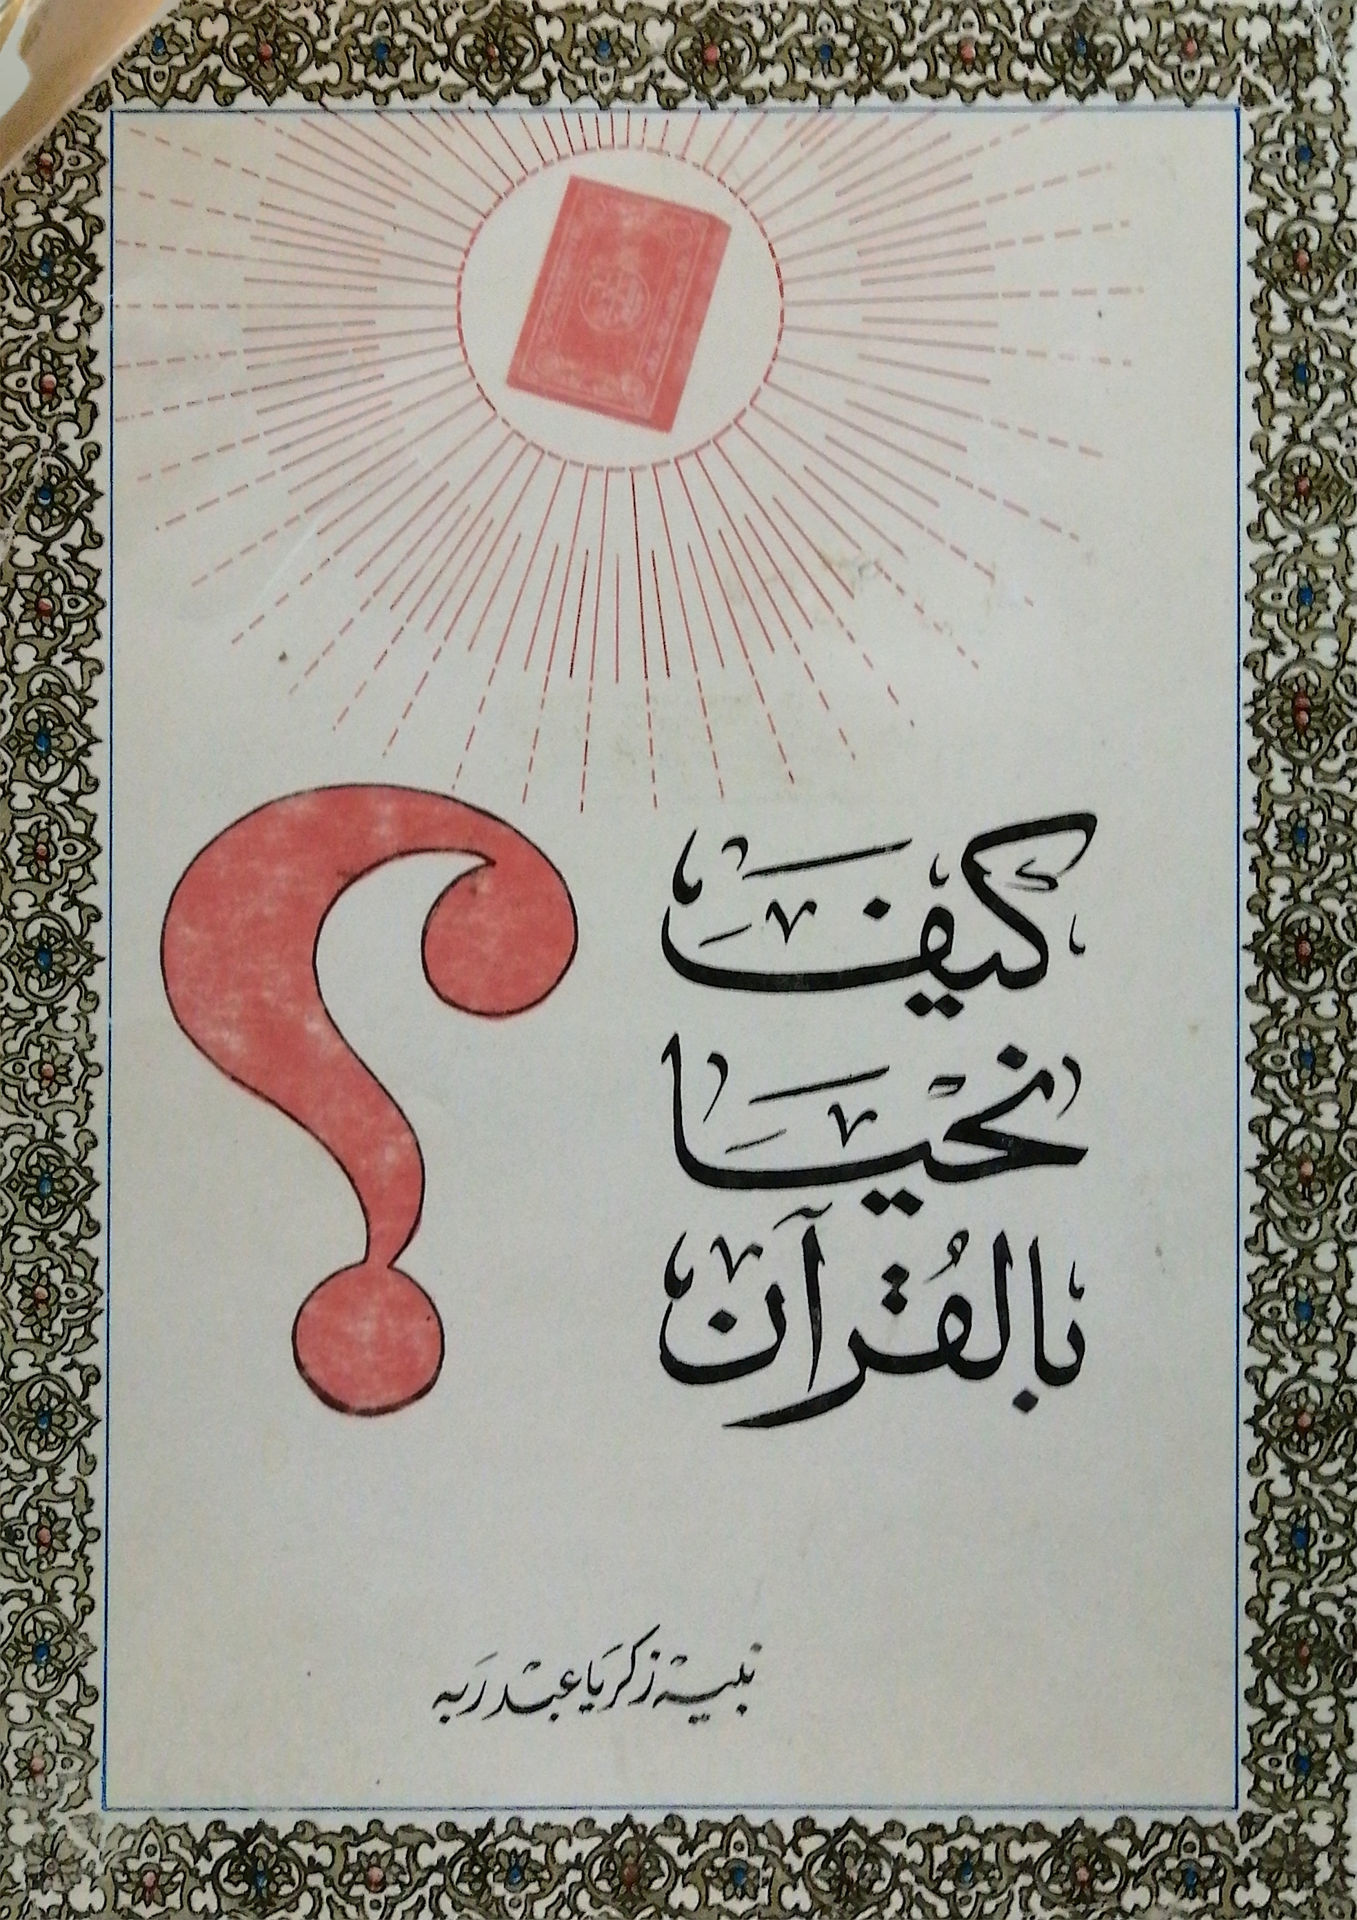 كيف
نحيا
بالقُرآن
؟
نبيه زكريا عبد ربه